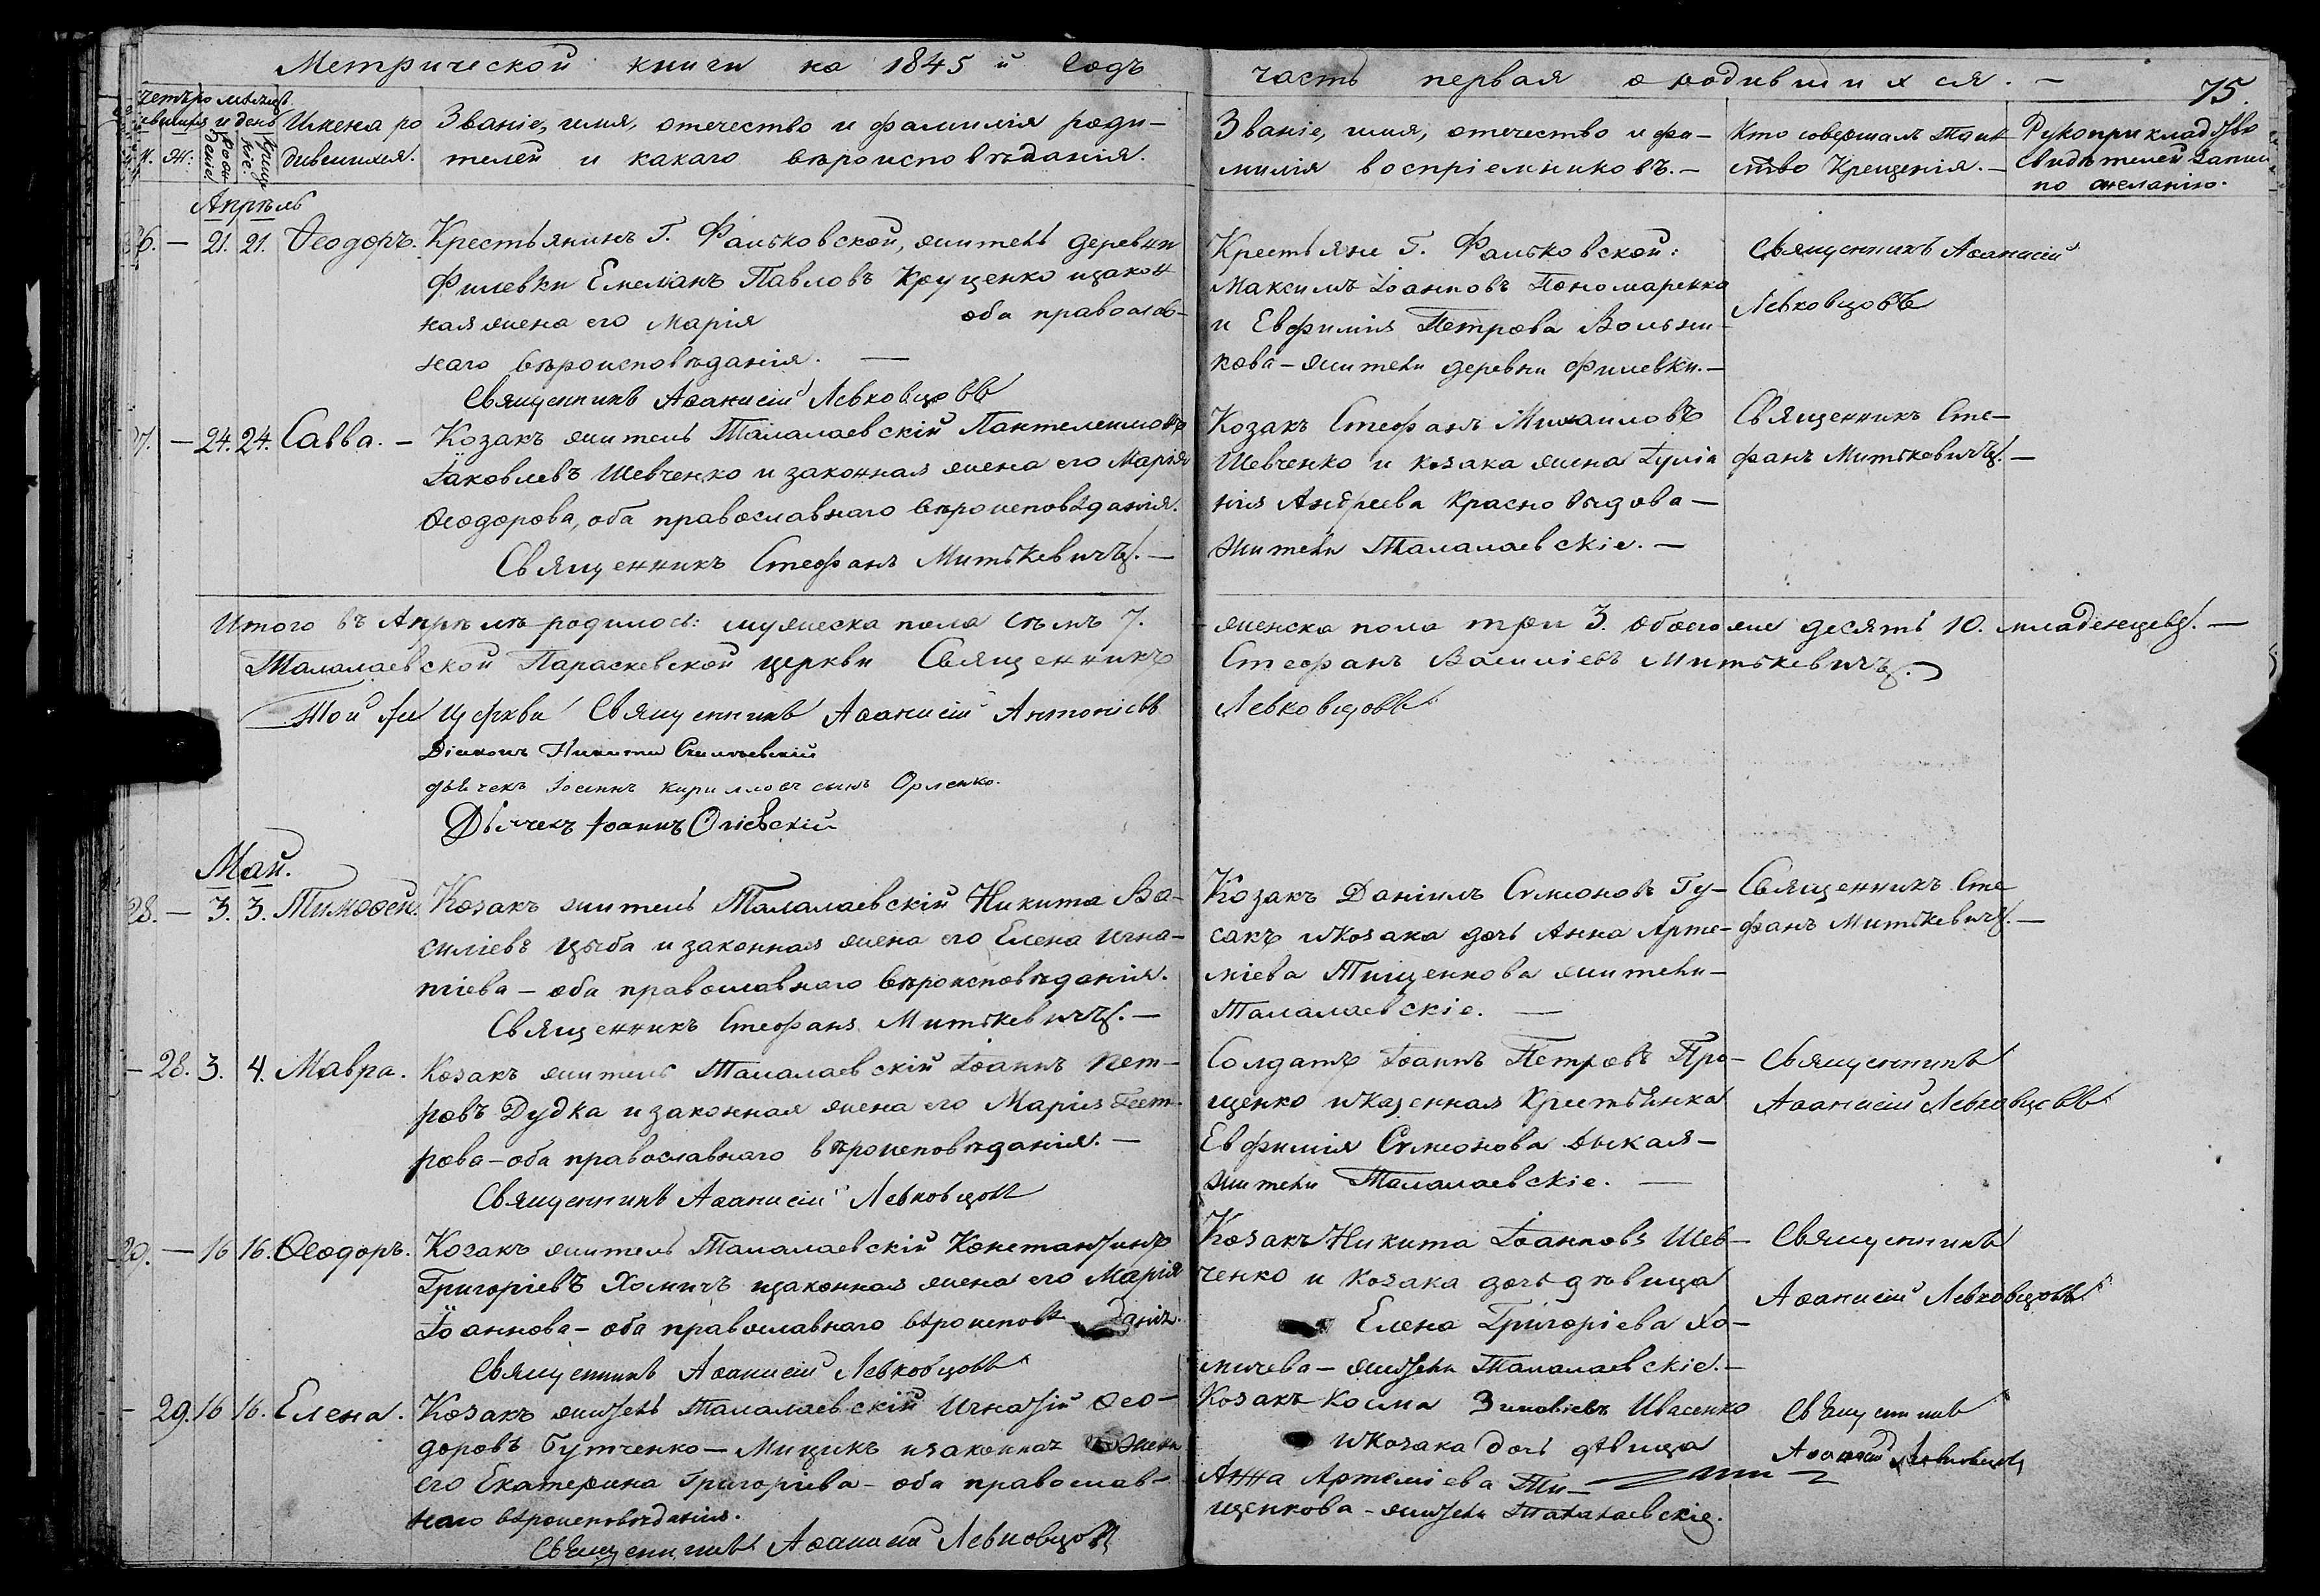 Метрической книги на 1845й годъ
часть первая о родившихся. —
75.
Имена ро
дившихся.
Званіе, имя, отечество и фамилія роди-
телей и какаго вѣроисповѣданія.
Званіе, имя, отечество и фа-
милія воспріемниковъ. —
Кто совершалъ Таин
ство Крещенія. —
Рукоприкладство
свидѣтелей записи
по желанію.
М. Ж:
Апрѣль
26. — 21. 21. Ѳеодоръ. Крестьянинъ Г. Фальковской, житель деревни
Филевки Емеліанъ Павловъ Куценко и закон
ная жена его Марія оба православ-
наго вѣроисповѣданія. —
Священникъ Аѳанасій Левковцовъ
Крестьяне Г. Фальковской:
Максимъ Іоанновъ Пономаренко
и Евфимія Петрова Вольни-
кова — жители деревни Филевки. —
Священникъ Аѳанасій
Левковцовъ
27. — 24. 24. Савва. — Козакъ житель Талалаевскій Пантелеимонъ
Іаковлевъ Шевченко и законная жена его Марія
Ѳеодорова, оба православнаго вѣроисповѣданія.
Священникъ Стефанъ Митькевичъ. —
Козакъ Стефанъ Михаиловъ
Шевченко и козака жена Іуліа
нія Андреева Красно
жители Талалаевскіе. —
Священникъ Сте-
фанъ Митькевичъ. —
Итого въ Апрѣлѣ родилось: мужеска пола семь 7.
женска пола три 3. обоего же десять 10. младенцевъ. —
Талалаевской Параскевской церкви Священникъ
Стефанъ Василіевъ Митькевичъ. —
Той же Церкви Священникъ Аѳанасій Антоніевъ
Левковцовъ
Діаконъ Никита
дьячекъ Іоаннъ Кирилловъ сынъ Орленко.
Дьячекъ Іоаннъ Олієвскій
Май.
28. — 3. 3. Тимоѳей. Козакъ житель Талалаевскій Никита Ва-
силіевъ Цыба и законная жена его Елена Игна-
тіева — оба православнаго вѣроисповѣданія.
Священникъ Стефанъ Митькевичъ. —
Козакъ Даніилъ Симеоновъ Гу-
сакъ и козака дочь Анна Арте-
міева Тищенкова жители —
Талалаевскіе. —
Священникъ Сте
фанъ Митькевичъ. —
— 28. 3. 4. Мавра. Козакъ житель Талалаевскій Іоаннъ Пет-
ровъ Дудка и законная жена его Марія Пет-
рова — оба православнаго вѣроисповѣданія. —
Священникъ Аѳанасій Левковцовъ
Солдатъ Іоаннъ Петровъ Про-
щенко и казенная Крестьянка
Евфимія Симеонова Дыкая —
жители Талалаевскіе. —
Священникъ
Аѳанасій Левковцовъ
29. — 16 16. Ѳеодоръ. Козакъ житель Талалаевскій Константинъ
Григоріевъ Хомичъ и законная жена его Марія
Іоаннова — оба православнаго вѣроисповѣданія.
Священникъ Аѳанасій Левковцовъ
Козакъ Никита Іоанновъ Шев-
ченко и козака дочь дѣвица
Елена Григоріева Хо-
мичева — жители Талалаевскіе. —
Священникъ
Аѳанасій Левковцовъ
— 29. 16 16. Елена. Козакъ житель Талалаевскій Игнатій Ѳео-
доровъ Бутченко — Мицикъ и законная жена
его Екатерина Григоріева — оба православ-
наго вѣроисповѣданія.
Священникъ Аѳанасій Левковцовъ
Козакъ Косма Зиновіевъ Ивасенко
и козака дочь дѣвица
Анна Артеміева Ти-
щенкова — жители Талалаевскіе.
Священникъ
Аѳанасій Левковцовъ